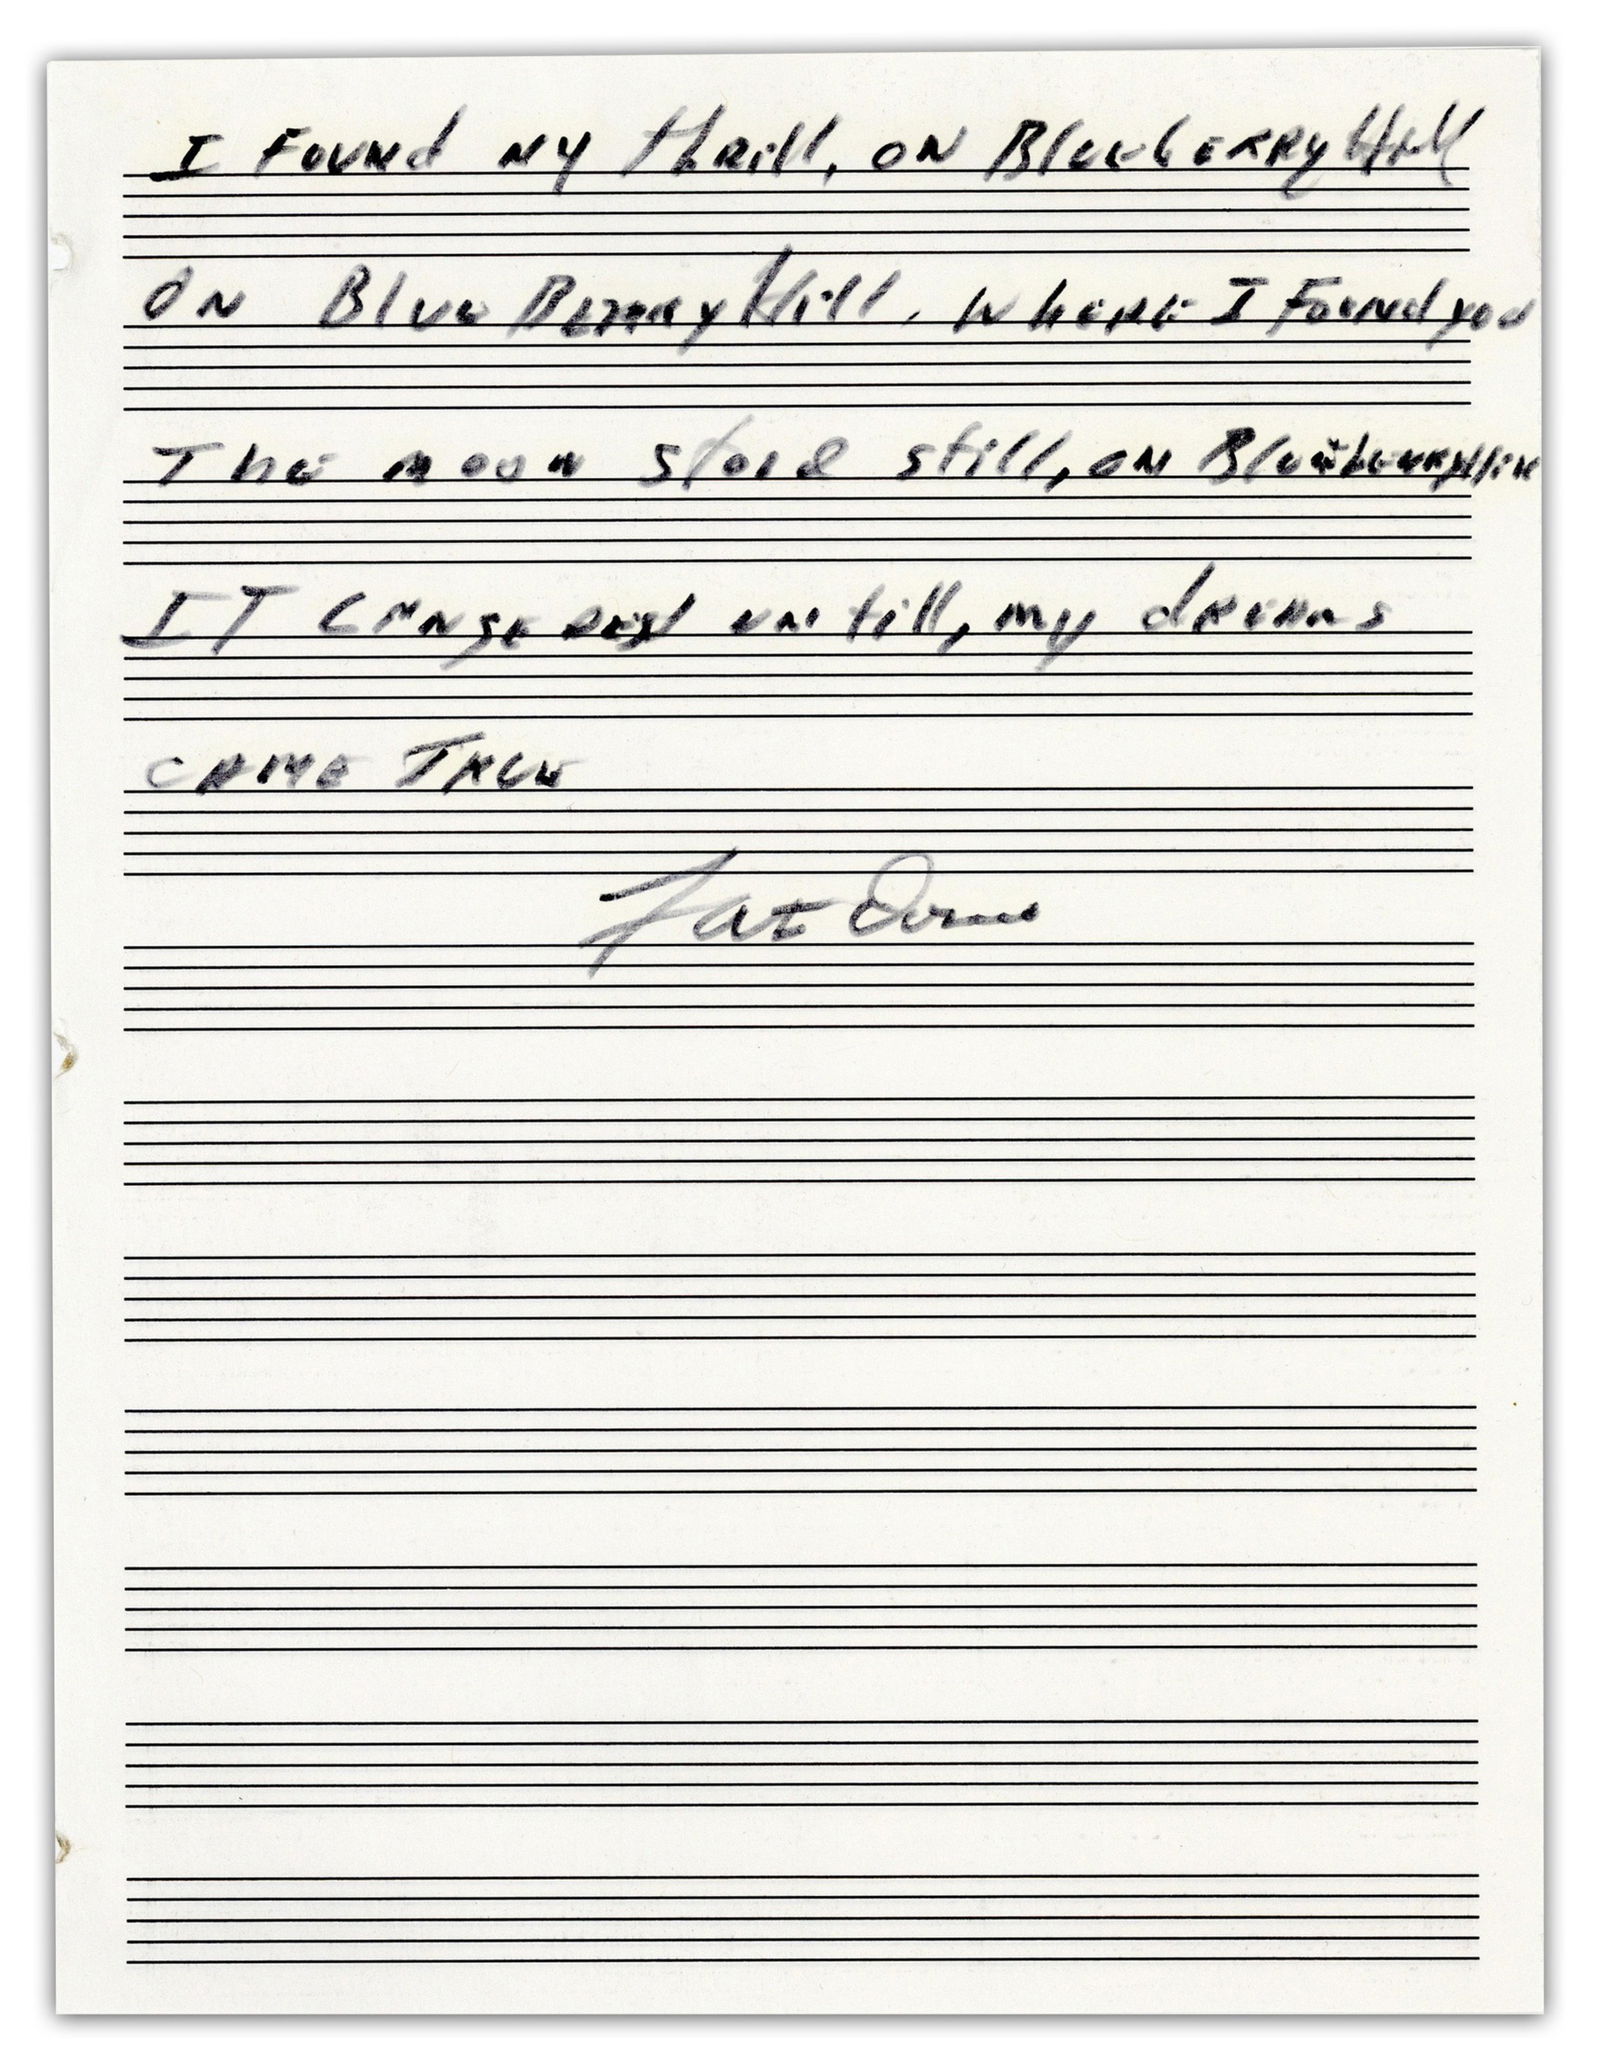 I Found my thrill, on Blueberry Hill
On Blue Berry Hill, Where I Found you
The moon stood still, on Blueberry Hill
IT untill, my dreams
CAME TRUE
Fats Domino